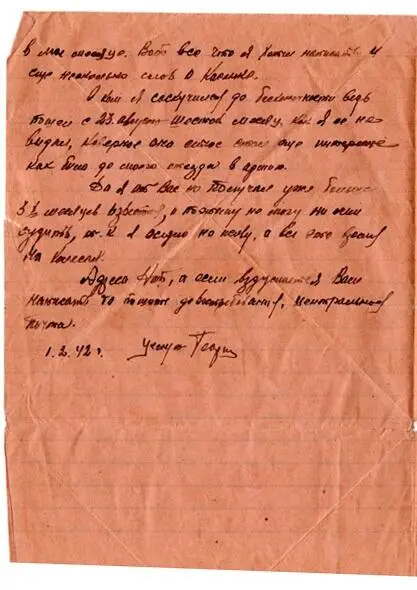 в мае месяце. Вот все что я хотел написать и
еще несколько слов о
О ком я соскучился до бесконечности ведь
пошел с 23 августа шестой месяц, как я ее не
видал, наверное она сейчас стала еще интересней
как было до моего отъезда в армию.
Да я от Вас не получаю уже больше
3½ месяцев известий, а поэтому не могу ни о чем
судить, т. к. я не сижу на месте, а все это время
на колесах.
Адреса нет, а если вздумается Вам
написать то пишите до востребования, центральная
почта.
1.2.42 г.